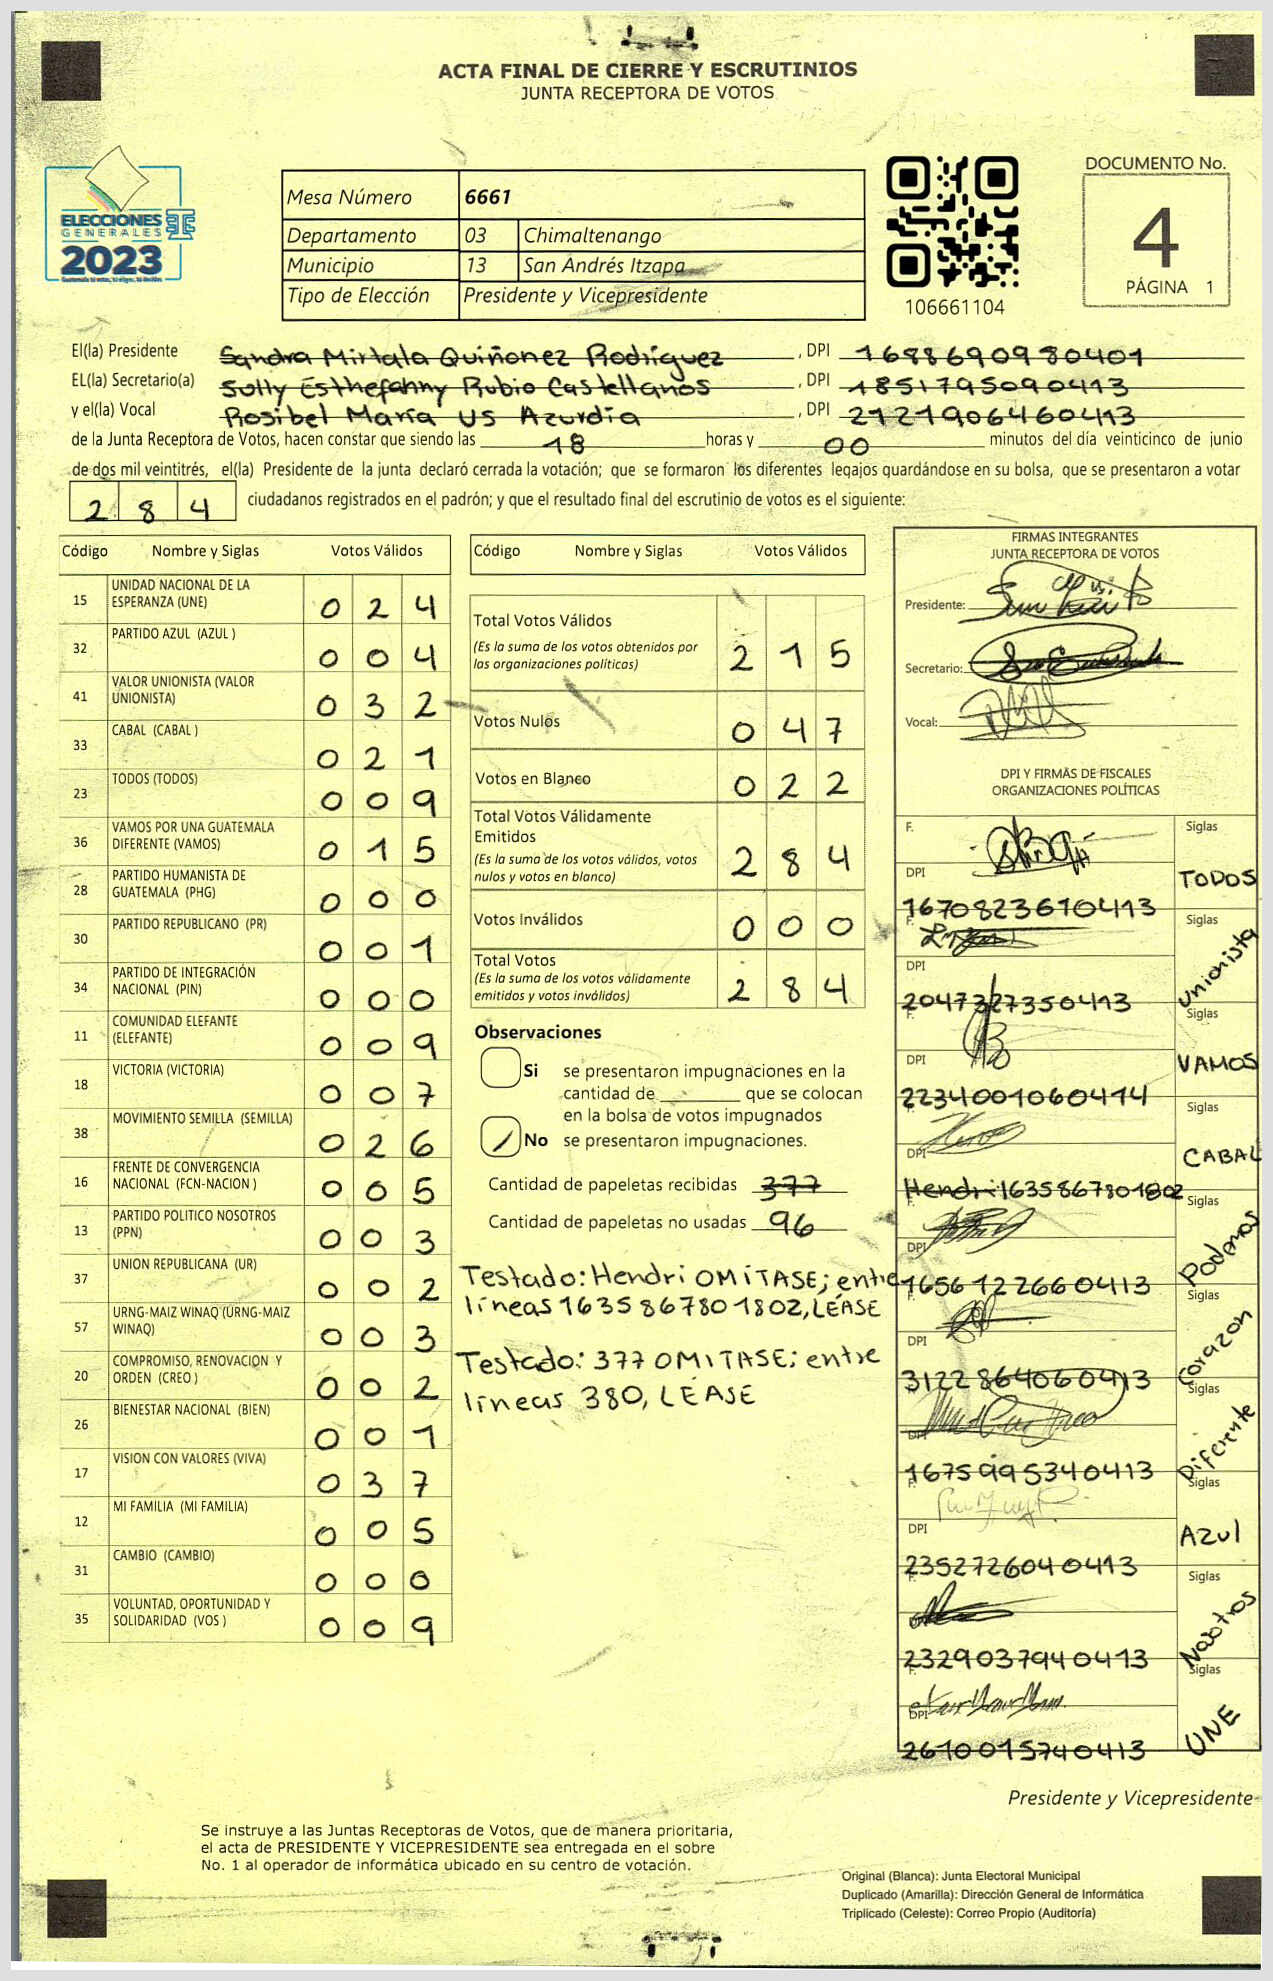 ACTA FINAL DE CIERRE Y ESCRUTINIOS
JUNTA RECEPTORA DE VOTOS
ELECCIONES
GENERALES
2023
Mesa Número 6661
Departamento 03 Chimaltenango
Municipio 13 San Andrés Itzapa
Tipo de Elección Presidente y Vicepresidente
106661104
DOCUMENTO No.
4
PÁGINA 1
El(la) Presidente Sandra Mirtala Quiñonez Rodríguez, DPI 1688690980401
EL(la) Secretario(a) Sully Esthefanny Rubio Castellanos, DPI 1851795090413
y el(la) Vocal Rosibel María US Azurdia, DPI 2121906460413
de la Junta Receptora de Votos, hacen constar que siendo las 18 horas y 00 minutos del día veinticinco de junio
de dos mil veintitrés, el(la) Presidente de la junta declaró cerrada la votación; que se formaron los diferentes legajos guardándose en su bolsa, que se presentaron a votar
284 ciudadanos registrados en el padrón; y que el resultado final del escrutinio de votos es el siguiente:
Código Nombre y Siglas Votos Válidos
15 UNIDAD NACIONAL DE LA ESPERANZA (UNE) 024
32 PARTIDO AZUL (AZUL ) 004
41 VALOR UNIONISTA (VALOR UNIONISTA) 032
33 CABAL (CABAL ) 021
23 TODOS (TODOS) 009
36 VAMOS POR UNA GUATEMALA DIFERENTE (VAMOS) 015
28 PARTIDO HUMANISTA DE GUATEMALA (PHG) 000
30 PARTIDO REPUBLICANO (PR) 001
34 PARTIDO DE INTEGRACIÓN NACIONAL (PIN) 000
11 COMUNIDAD ELEFANTE (ELEFANTE) 009
18 VICTORIA (VICTORIA) 007
38 MOVIMIENTO SEMILLA (SEMILLA) 026
16 FRENTE DE CONVERGENCIA NACIONAL (FCN-NACION ) 005
13 PARTIDO POLITICO NOSOTROS (PPN) 003
37 UNION REPUBLICANA (UR) 002
57 URNG-MAIZ WINAQ (URNG-MAIZ WINAQ) 003
20 COMPROMISO, RENOVACION Y ORDEN (CREO ) 002
26 BIENESTAR NACIONAL (BIEN) 001
17 VISION CON VALORES (VIVA) 037
12 MI FAMILIA (MI FAMILIA) 005
31 CAMBIO (CAMBIO) 000
35 VOLUNTAD, OPORTUNIDAD Y SOLIDARIDAD (VOS ) 009
Código Nombre y Siglas Votos Válidos
Total Votos Válidos
(Es la suma de los votos obtenidos por las organizaciones políticas) 215
Votos Nulos 047
Votos en Blanco 022
Total Votos Válidamente Emitidos
(Es la suma de los votos válidos, votos nulos y votos en blanco) 284
Votos Inválidos 000
Total Votos
(Es la suma de los votos válidamente emitidos y votos inválidos) 284
Observaciones
Si se presentaron impugnaciones en la
cantidad de ________ que se colocan
en la bolsa de votos impugnados
No se presentaron impugnaciones.
Cantidad de papeletas recibidas 377
Cantidad de papeletas no usadas 96
Testado: Hendri OMITASE; entre
líneas 1635867801802, LÉASE
Testado: 377 OMITASE; entre
líneas 380, LÉASE
FIRMAS INTEGRANTES
JUNTA RECEPTORA DE VOTOS
Presidente:
Secretario:
Vocal:
DPI Y FIRMAS DE FISCALES
ORGANIZACIONES POLÍTICAS
F. Siglas
DPI 1670823610413 TODOS
F. Siglas
DPI 2047327350413 Unionista
F. Siglas
DPI 2234001060414 VAMOS
F. Siglas
DPI Hendri 1635867801802 CABAL
F. Siglas
DPI 1656122660413 Podemos
F. Siglas
DPI 3122864060413 Corazon
F. Siglas
DPI 1675995340413 Diferente
F. Siglas
DPI 2352726040413 Azul
F. Siglas
DPI 2329037940413 Nosotros
F. Siglas
DPI 2610015740413 UNE
Presidente y Vicepresidente
Se instruye a las Juntas Receptoras de Votos, que de manera prioritaria,
el acta de PRESIDENTE Y VICEPRESIDENTE sea entregada en el sobre
No. 1 al operador de informática ubicado en su centro de votación.
Original (Blanca): Junta Electoral Municipal
Duplicado (Amarilla): Dirección General de Informática
Triplicado (Celeste): Correo Propio (Auditoría)